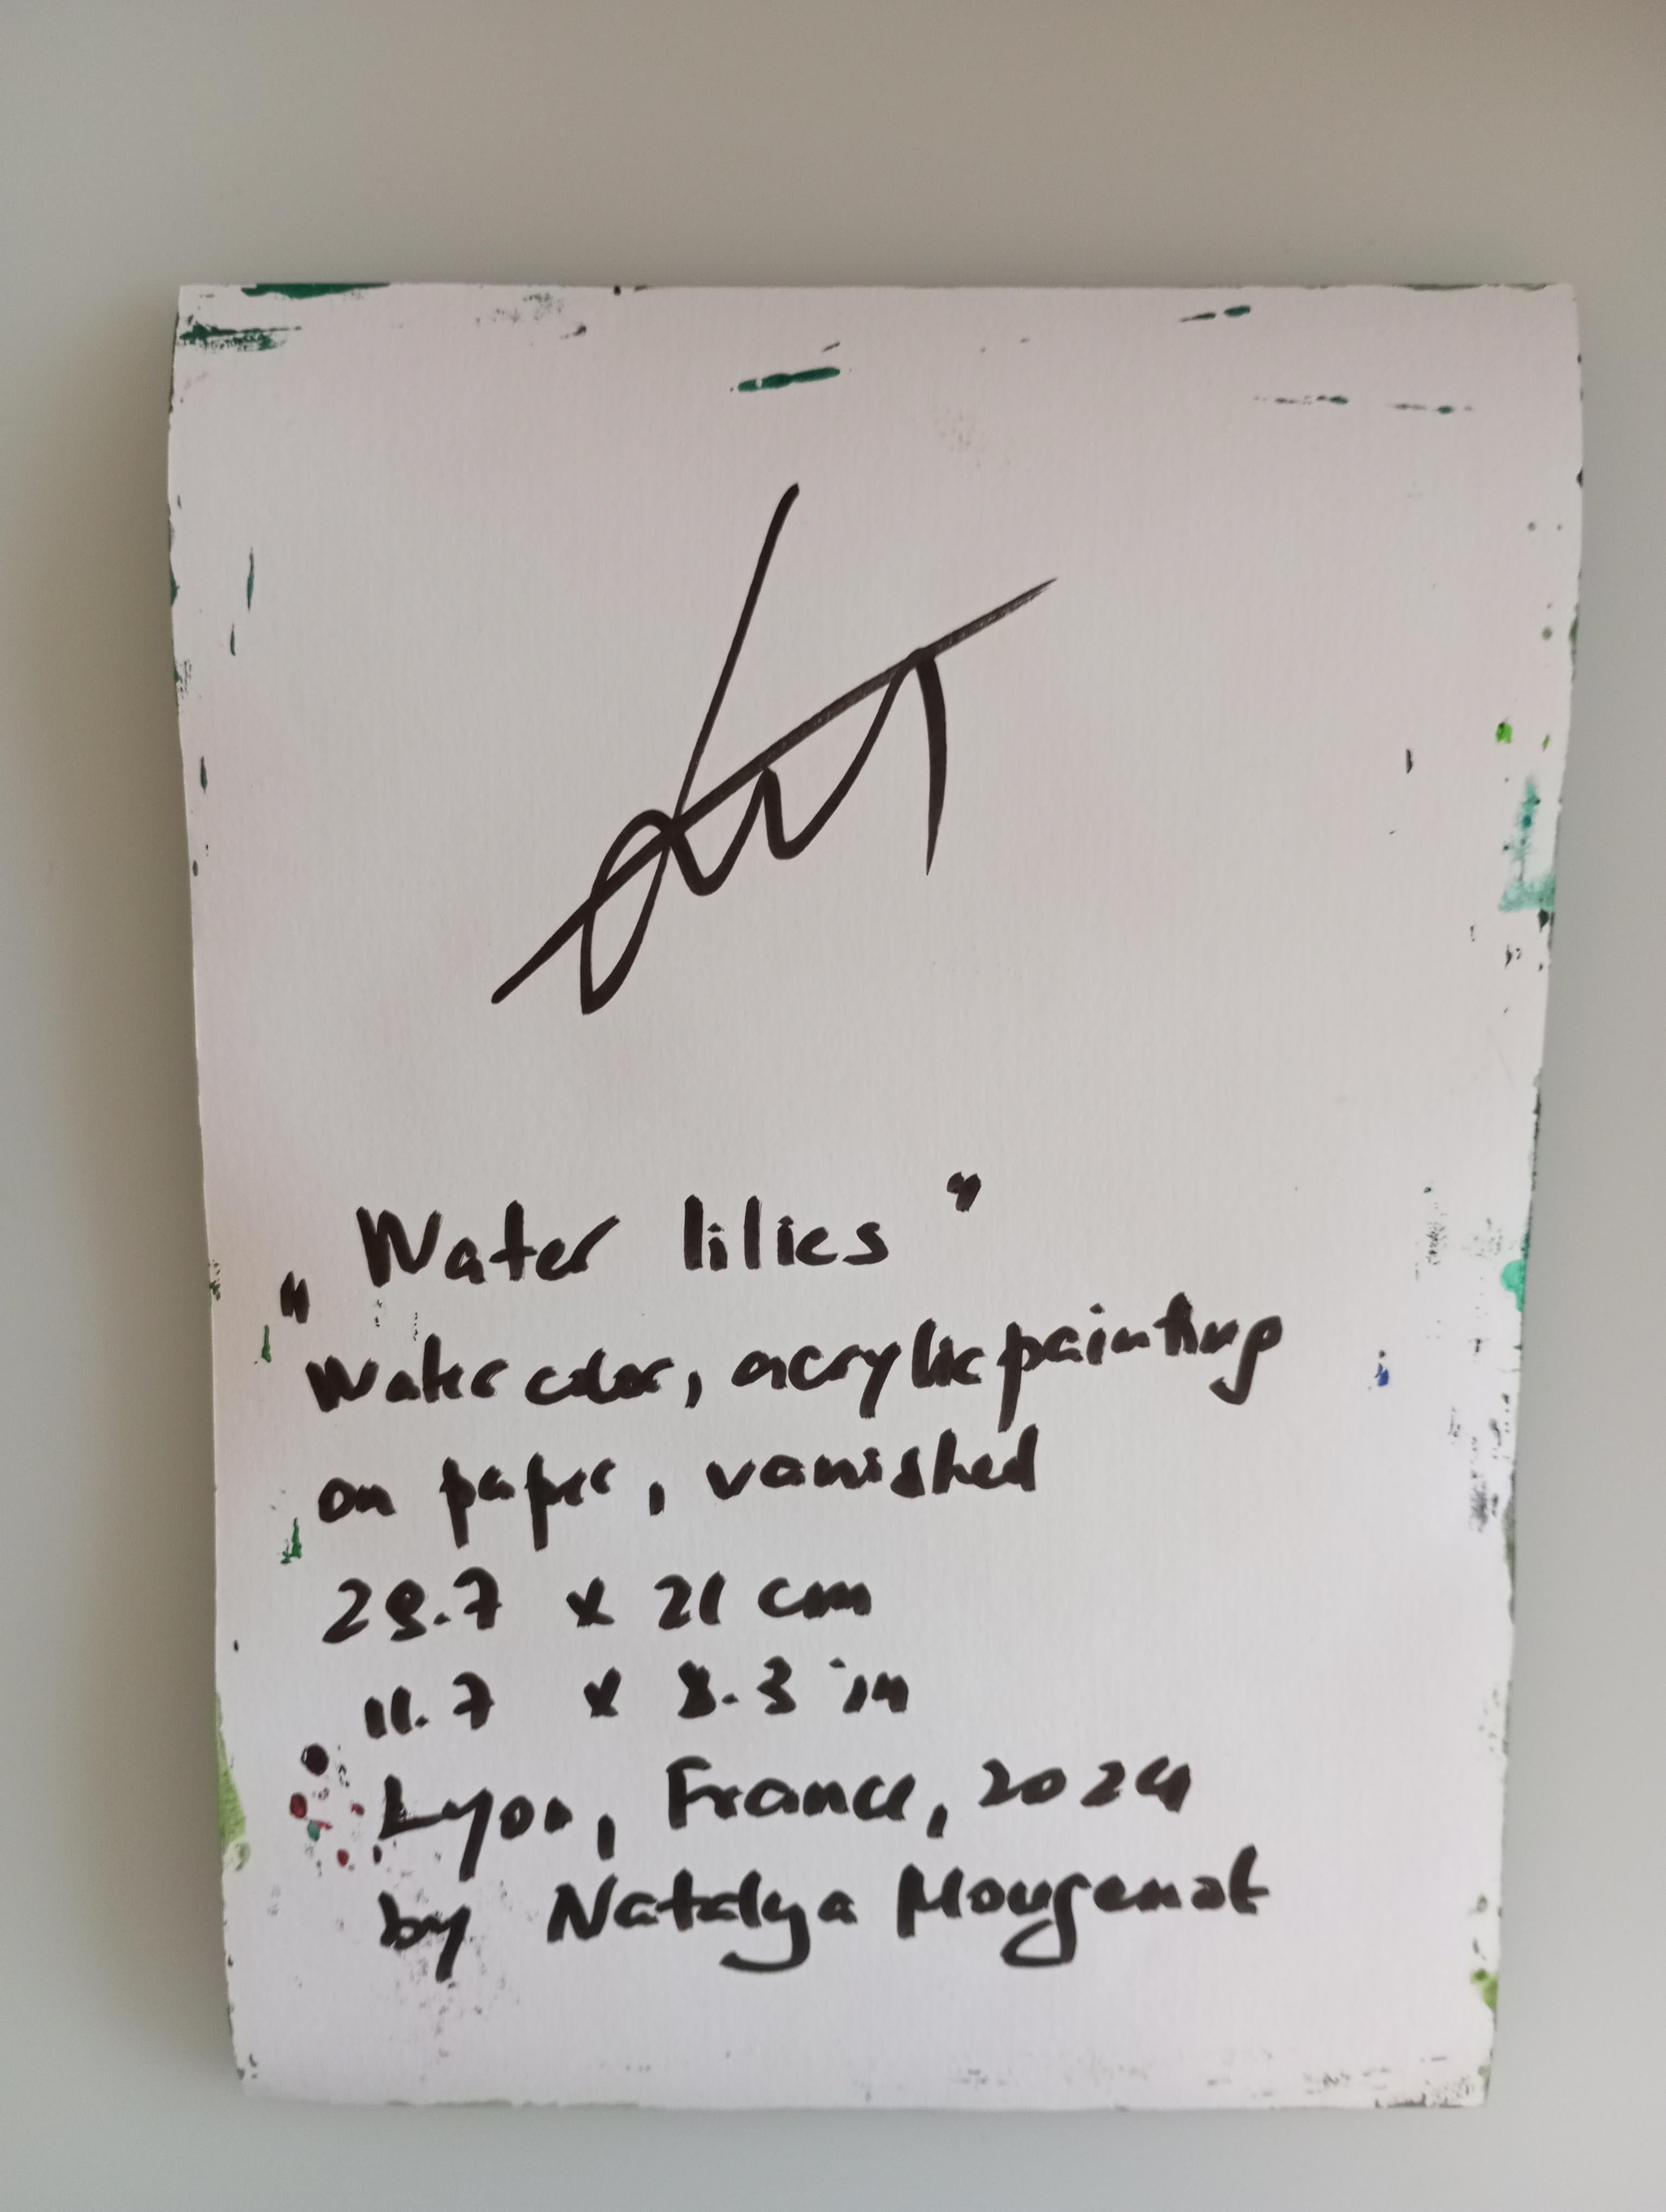 „Water lilies"
Watercolor, acrylic painting
on paper, vanished
29.7 x 21 cm
11.7 x 8.3 in
Lyon, France, 2024
by Natalya Mougenot